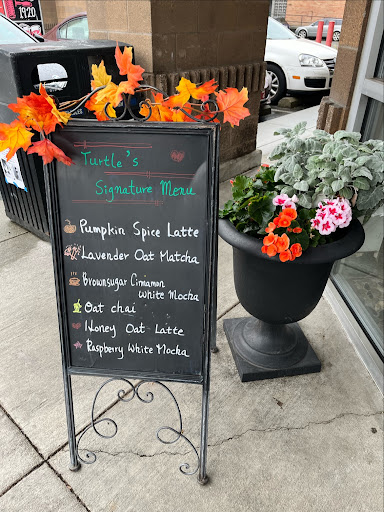 1920
Turtle's
Signature Menu
Pumpkin Spice Latte
Lavender Oat Matcha
Brownsugar Cinnamon
White Mocha
Oat chai
Honey Oat Latte
Raspberry White Mocha